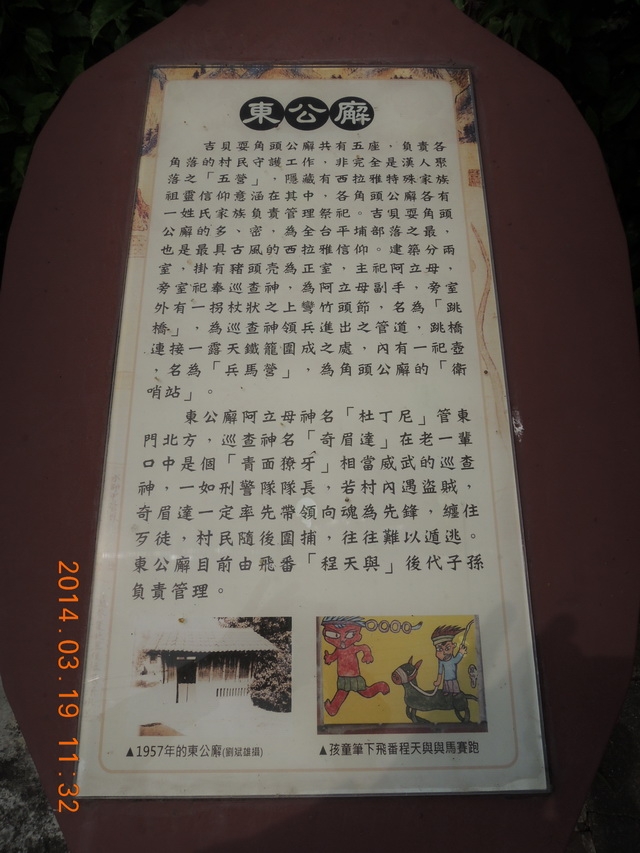 東公廨
吉貝耍角頭公廨共有五座，負責各
角落的村民守護工作，非全是漢人聚
落之「五營」，隱藏有西拉雅特殊家族
祖靈信仰意涵在其中，各角頭公廨各有
一姓氏家族負責管理祭祀。吉貝耍角頭
公廨的多、密，為全台平埔部落之最，
也是最具古風的西拉雅信仰。建築分兩
室，掛有豬頭壳為正室，主祀阿立母，
旁室祀奉巡查神，為阿立母副手，旁室
外有一拐杖狀之上彎竹頭節，名為「跳
橋」，為巡查神領兵進出之管道，跳橋
連接一露天鐵籠圍成之處，內有一祀壺
，名為「兵馬營」，為角頭公廨的「衛
哨站」。
東公廨阿立母神名「杜丁尼」管東
門北方，巡查神名「奇眉達」在老一輩
口中是個「青面獠牙」相當威武的巡查
神，一如刑警隊隊長，若村內遇盜賊，
奇眉達一定率先帶領向魂為先鋒，纏住
歹徒，村民隨後圍捕，往往難以遁逃。
東公廨目前由飛番「程天與」後代子孫
負責管理。
▲1957年的東公廨(劉斌雄攝)
▲孩童筆下飛番程天與與馬賽跑
2014.03.19 11:32